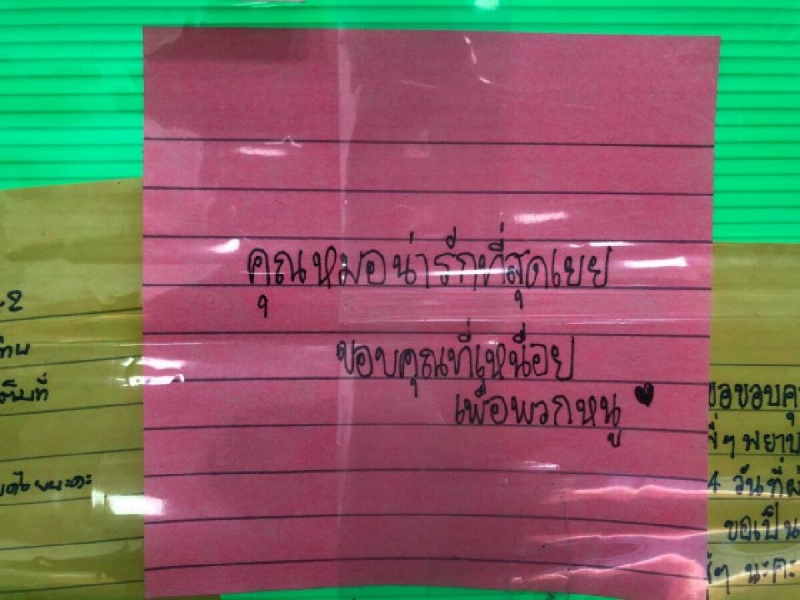 คุณหมอน่ารักที่สุดเยย
ขอบคุณที่เหนื่อย
เพื่อพวกหนู
-2
ขอขอบคุ
พี่ๆ พยาบ
4 วันที่ผ่
ขอเป็น
นะคะ